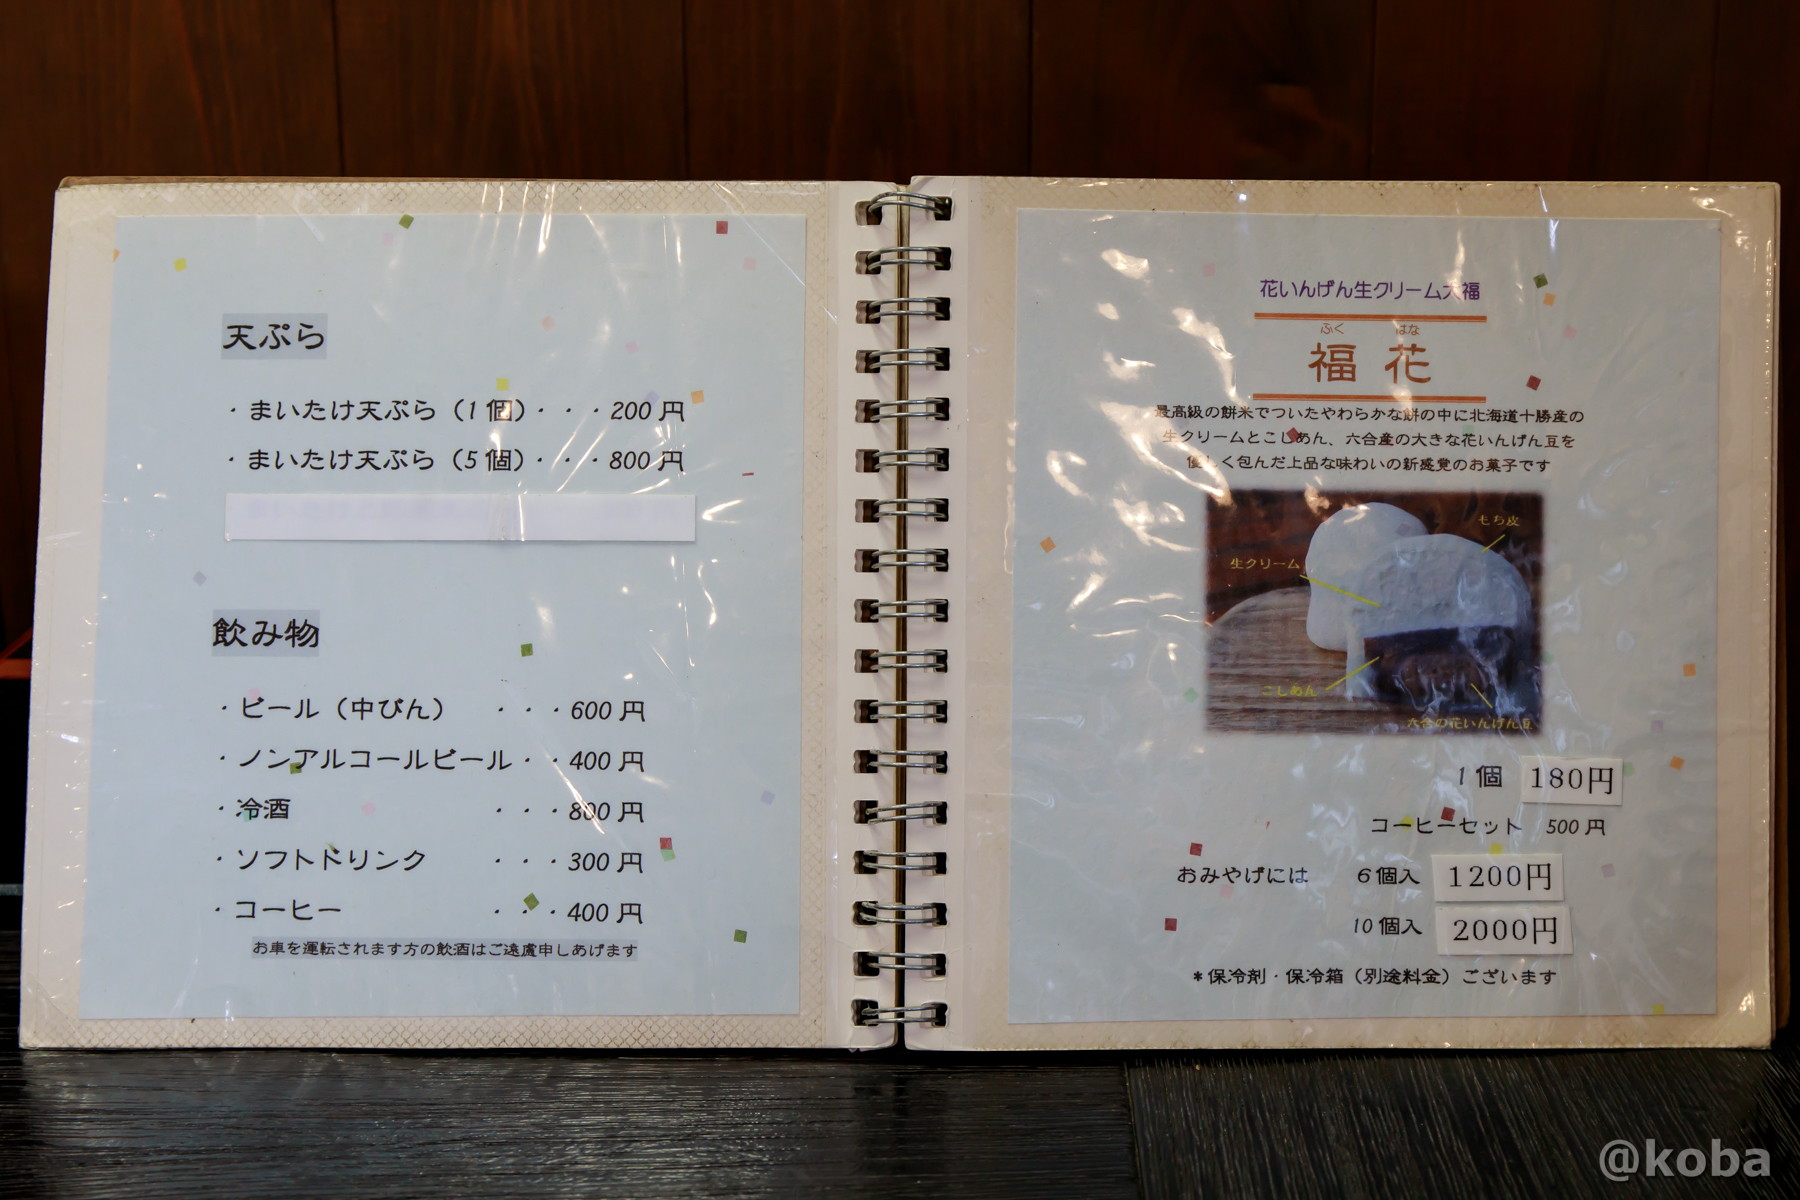 天ぷら
・まいたけ天ぷら（1個）・・・200円
・まいたけ天ぷら（5個）・・・800円
飲み物
・ビール（中びん）　・・・600円
・ノンアルコールビール・・400円
・冷酒　・・・800円
・ソフトドリンク　・・・300円
・コーヒー　・・・400円
お車を運転されます方の飲酒はご遠慮申しあげます
花いんげん生クリーム大福
ふく　はな
福花
最高級の餅米でついたやわらかな餅の中に北海道十勝産の
生クリームとこしあん、六合産の大きな花いんげん豆を
優しく包んだ上品な味わいの新感覚のお菓子です
もち皮
生クリーム
こしあん
六合の花いんげん豆
1個　180円
コーヒーセット　500円
おみやげには　6個入　1200円
10個入　2000円
＊保冷剤・保冷箱（別途料金）ございます
@koba